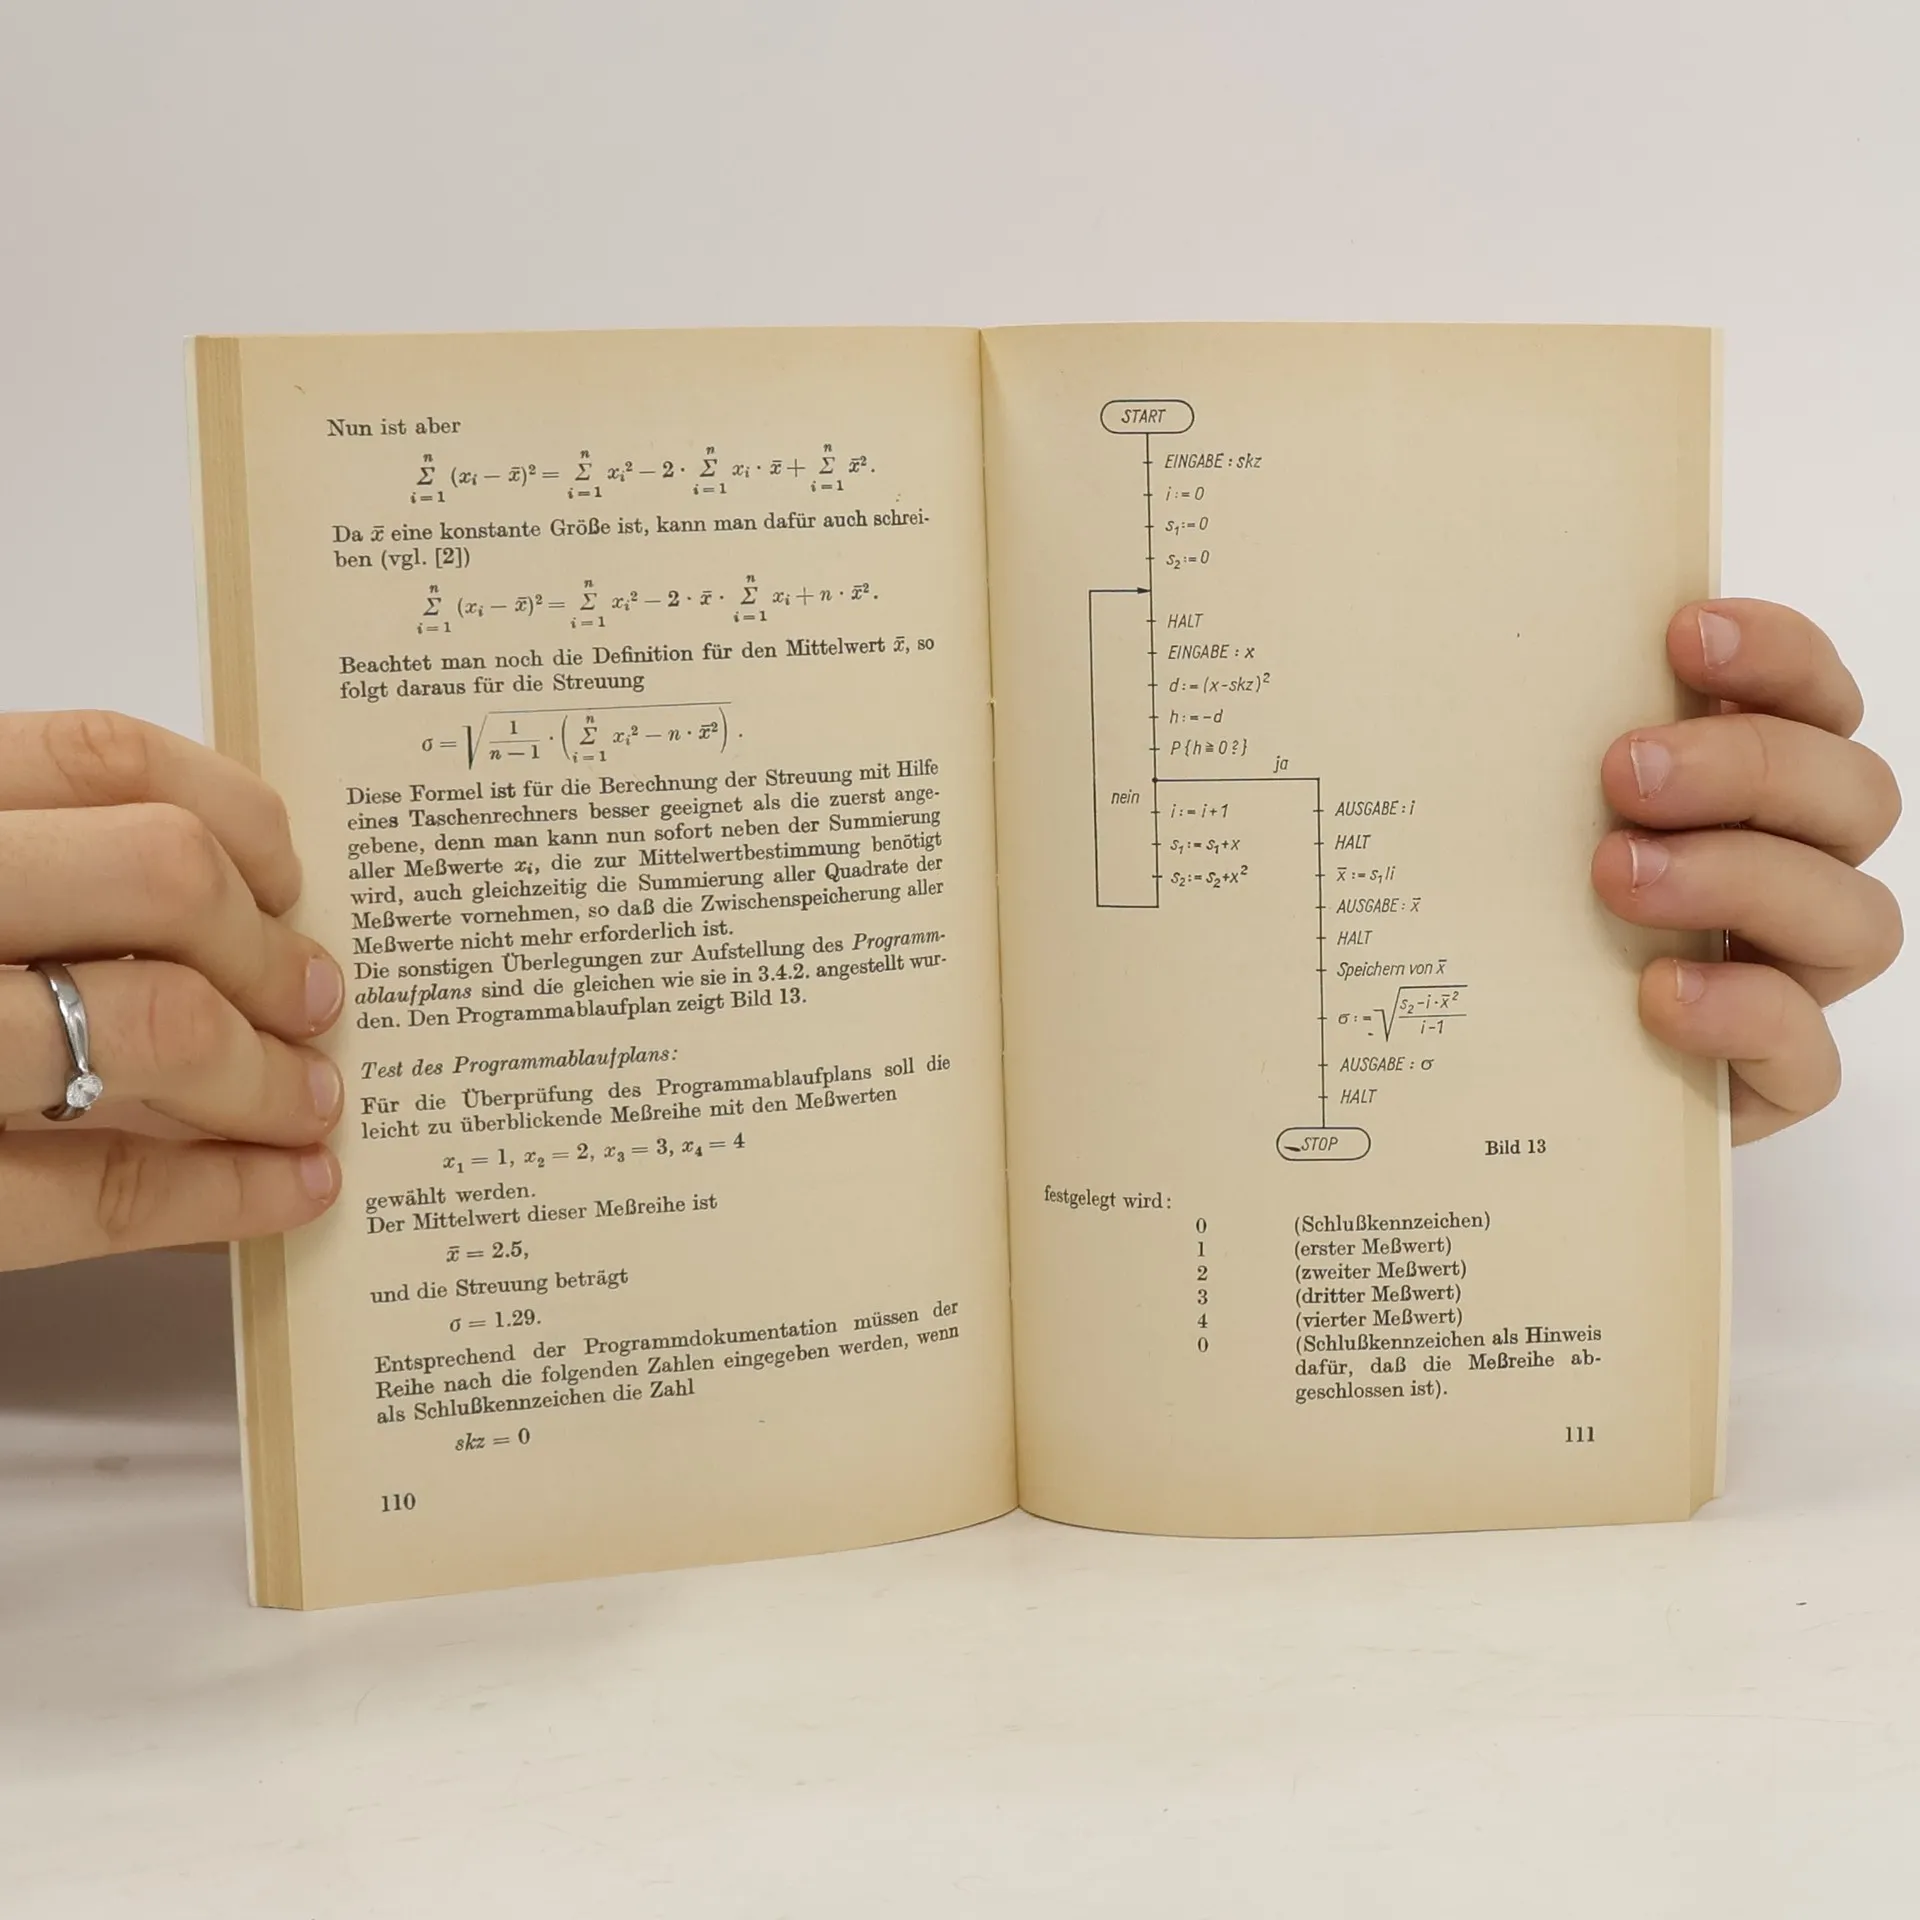 Nun ist aber
n n n n
Σ (xᵢ − x̄)² = Σ xᵢ² − 2 · Σ xᵢ · x̄ + Σ x̄².
i=1 i=1 i=1 i=1
Da x̄ eine konstante Größe ist, kann man dafür auch schrei-
ben (vgl. [2])
n n n
Σ (xᵢ − x̄)² = Σ xᵢ² − 2 · x̄ · Σ xᵢ + n · x̄².
i=1 i=1 i=1
Beachtet man noch die Definition für den Mittelwert x̄, so
folgt daraus für die Streuung
σ = √(1/(n − 1) · (Σ xᵢ² − n · x̄²)) .
n
i=1
Diese Formel ist für die Berechnung der Streuung mit Hilfe
eines Taschenrechners besser geeignet als die zuerst ange-
gebene, denn man kann nun sofort neben der Summierung
aller Meßwerte xᵢ, die zur Mittelwertbestimmung benötigt
wird, auch gleichzeitig die Summierung aller Quadrate der
Meßwerte vornehmen, so daß die Zwischenspeicherung aller
Meßwerte nicht mehr erforderlich ist.
Die sonstigen Überlegungen zur Aufstellung des Programm-
ablaufplans sind die gleichen wie sie in 3.4.2. angestellt wur-
den. Den Programmablaufplan zeigt Bild 13.
Test des Programmablaufplans:
Für die Überprüfung des Programmablaufplans soll die
leicht zu überblickende Meßreihe mit den Meßwerten
x₁ = 1, x₂ = 2, x₃ = 3, x₄ = 4
gewählt werden.
Der Mittelwert dieser Meßreihe ist
x̄ = 2.5,
und die Streuung beträgt
σ = 1.29.
Entsprechend der Programmdokumentation müssen der
Reihe nach die folgenden Zahlen eingegeben werden, wenn
als Schlußkennzeichen die Zahl
skz = 0
110
START
EINGABE : skz
i := 0
s₁ := 0
s₂ := 0
HALT
EINGABE : x
d := (x-skz)²
h := -d
P{h ≧ 0?}
ja
nein
i := i+1
s₁ := s₁+x
s₂ := s₂+x²
AUSGABE : i
HALT
x̄ := s₁/i
AUSGABE : x̄
HALT
Speichern von x̄
σ := √((s₂-i·x̄²)/(i-1))
AUSGABE : σ
HALT
STOP
Bild 13
festgelegt wird:
0 (Schlußkennzeichen)
1 (erster Meßwert)
2 (zweiter Meßwert)
3 (dritter Meßwert)
4 (vierter Meßwert)
0 (Schlußkennzeichen als Hinweis
dafür, daß die Meßreihe ab-
geschlossen ist).
111